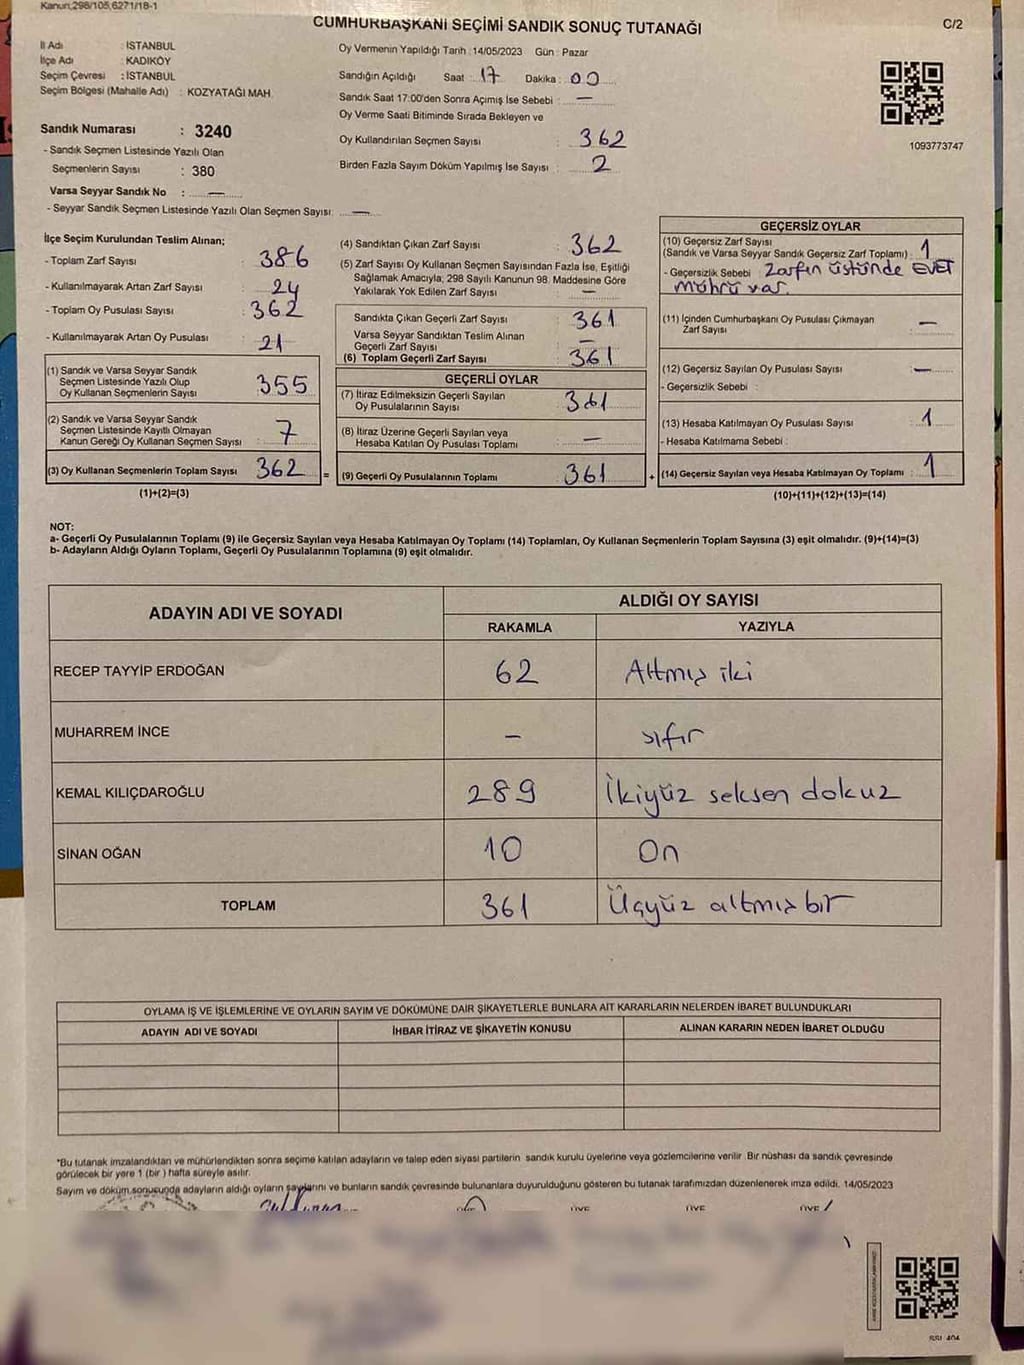 Kanun;298/105,6271/18-1
CUMHURBAŞKANI SEÇİMİ SANDIK SONUÇ TUTANAĞI
C/2
İl Adı : İSTANBUL
İlçe Adı : KADIKÖY
Seçim Çevresi : İSTANBUL
Seçim Bölgesi (Mahalle Adı) : KOZYATAĞI MAH.
Sandık Numarası : 3240
- Sandık Seçmen Listesinde Yazılı Olan
Seçmenlerin Sayısı : 380
Varsa Seyyar Sandık No : —
- Seyyar Sandık Seçmen Listesinde Yazılı Olan Seçmen Sayısı: —
Oy Vermenin Yapıldığı Tarih : 14/05/2023 Gün : Pazar
Sandığın Açıldığı Saat : 17 Dakika : 00
Sandık Saat 17:00'den Sonra Açımış İse Sebebi : —
Oy Verme Saati Bitiminde Sırada Bekleyen ve
Oy Kullandırılan Seçmen Sayısı : 362
Birden Fazla Sayım Döküm Yapılmış İse Sayısı : 2
1093773747
İlçe Seçim Kurulundan Teslim Alınan;
- Toplam Zarf Sayısı : 386
- Kullanılmayarak Artan Zarf Sayısı : 24
- Toplam Oy Pusulası Sayısı : 362
- Kullanılmayarak Artan Oy Pusulası : 21
(1) Sandık ve Varsa Seyyar Sandık
Seçmen Listesinde Yazılı Olup
Oy Kullanan Seçmenlerin Sayısı : 355
(2) Sandık ve Varsa Seyyar Sandık
Seçmen Listesinde Kayıtlı Olmayan
Kanun Gereği Oy Kullanan Seçmen Sayısı : 7
(3) Oy Kullanan Seçmenlerin Toplam Sayısı : 362 =
(1)+(2)=(3)
(4) Sandıktan Çıkan Zarf Sayısı : 362
(5) Zarf Sayısı Oy Kullanan Seçmen Sayısından Fazla İse, Eşitliği
Sağlamak Amacıyla; 298 Sayılı Kanunun 98. Maddesine Göre
Yakılarak Yok Edilen Zarf Sayısı : —
Sandıkta Çıkan Geçerli Zarf Sayısı : 361
Varsa Seyyar Sandıktan Teslim Alınan
Geçerli Zarf Sayısı : —
(6) Toplam Geçerli Zarf Sayısı : 361
GEÇERLİ OYLAR
(7) İtiraz Edilmeksizin Geçerli Sayılan
Oy Pusulalarının Sayısı : 361
(8) İtiraz Üzerine Geçerli Sayılan veya
Hesaba Katılan Oy Pusulası Toplamı : —
(9) Geçerli Oy Pusulalarının Toplamı : 361 +
GEÇERSİZ OYLAR
(10) Geçersiz Zarf Sayısı
(Sandık ve Varsa Seyyar Sandık Geçersiz Zarf Toplamı) : 1
- Geçersizlik Sebebi : Zarfın üstünde EVET
mührü var.
(11) İçinden Cumhurbaşkanı Oy Pusulası Çıkmayan
Zarf Sayısı : —
(12) Geçersiz Sayılan Oy Pusulası Sayısı : —
- Geçersizlik Sebebi :
(13) Hesaba Katılmayan Oy Pusulası Sayısı : 1
- Hesaba Katılmama Sebebi :
(14) Geçersiz Sayılan veya Hesaba Katılmayan Oy Toplamı : 1
(10)+(11)+(12)+(13)=(14)
NOT:
a- Geçerli Oy Pusulalarının Toplamı (9) ile Geçersiz Sayılan veya Hesaba Katılmayan Oy Toplamı (14) Toplamları, Oy Kullanan Seçmenlerin Toplam Sayısına (3) eşit olmalıdır. (9)+(14)=(3)
b- Adayların Aldığı Oyların Toplamı, Geçerli Oy Pusulalarının Toplamına (9) eşit olmalıdır.
ADAYIN ADI VE SOYADI
ALDIĞI OY SAYISI
RAKAMLA YAZIYLA
RECEP TAYYİP ERDOĞAN 62 Altmış iki
MUHARREM İNCE — sıfır
KEMAL KILIÇDAROĞLU 289 İkiyüz seksen dokuz
SİNAN OĞAN 10 On
TOPLAM 361 Üçyüz altmış bir
OYLAMA İŞ VE İŞLEMLERİNE VE OYLARIN SAYIM VE DÖKÜMÜNE DAİR ŞİKAYETLERLE BUNLARA AİT KARARLARIN NELERDEN İBARET BULUNDUKLARI
ADAYIN ADI VE SOYADI İHBAR İTİRAZ VE ŞİKAYETİN KONUSU ALINAN KARARIN NEDEN İBARET OLDUĞU
*Bu tutanak imzalandıktan ve mühürlendikten sonra seçime katılan adayların ve talep eden siyasi partilerin sandık kurulu üyelerine veya gözlemcilerine verilir. Bir nüshası da sandık çevresinde
görülecek bir yere 1 (bir) hafta süreyle asılır.
Sayım ve döküm sonucunda adayların aldığı oyların sayılarını ve bunların sandık çevresinde bulunanlara duyurulduğunu gösteren bu tutanak tarafımızdan düzenlenerek imza edildi. 14/05/2023
ÜYE ÜYE ÜYE